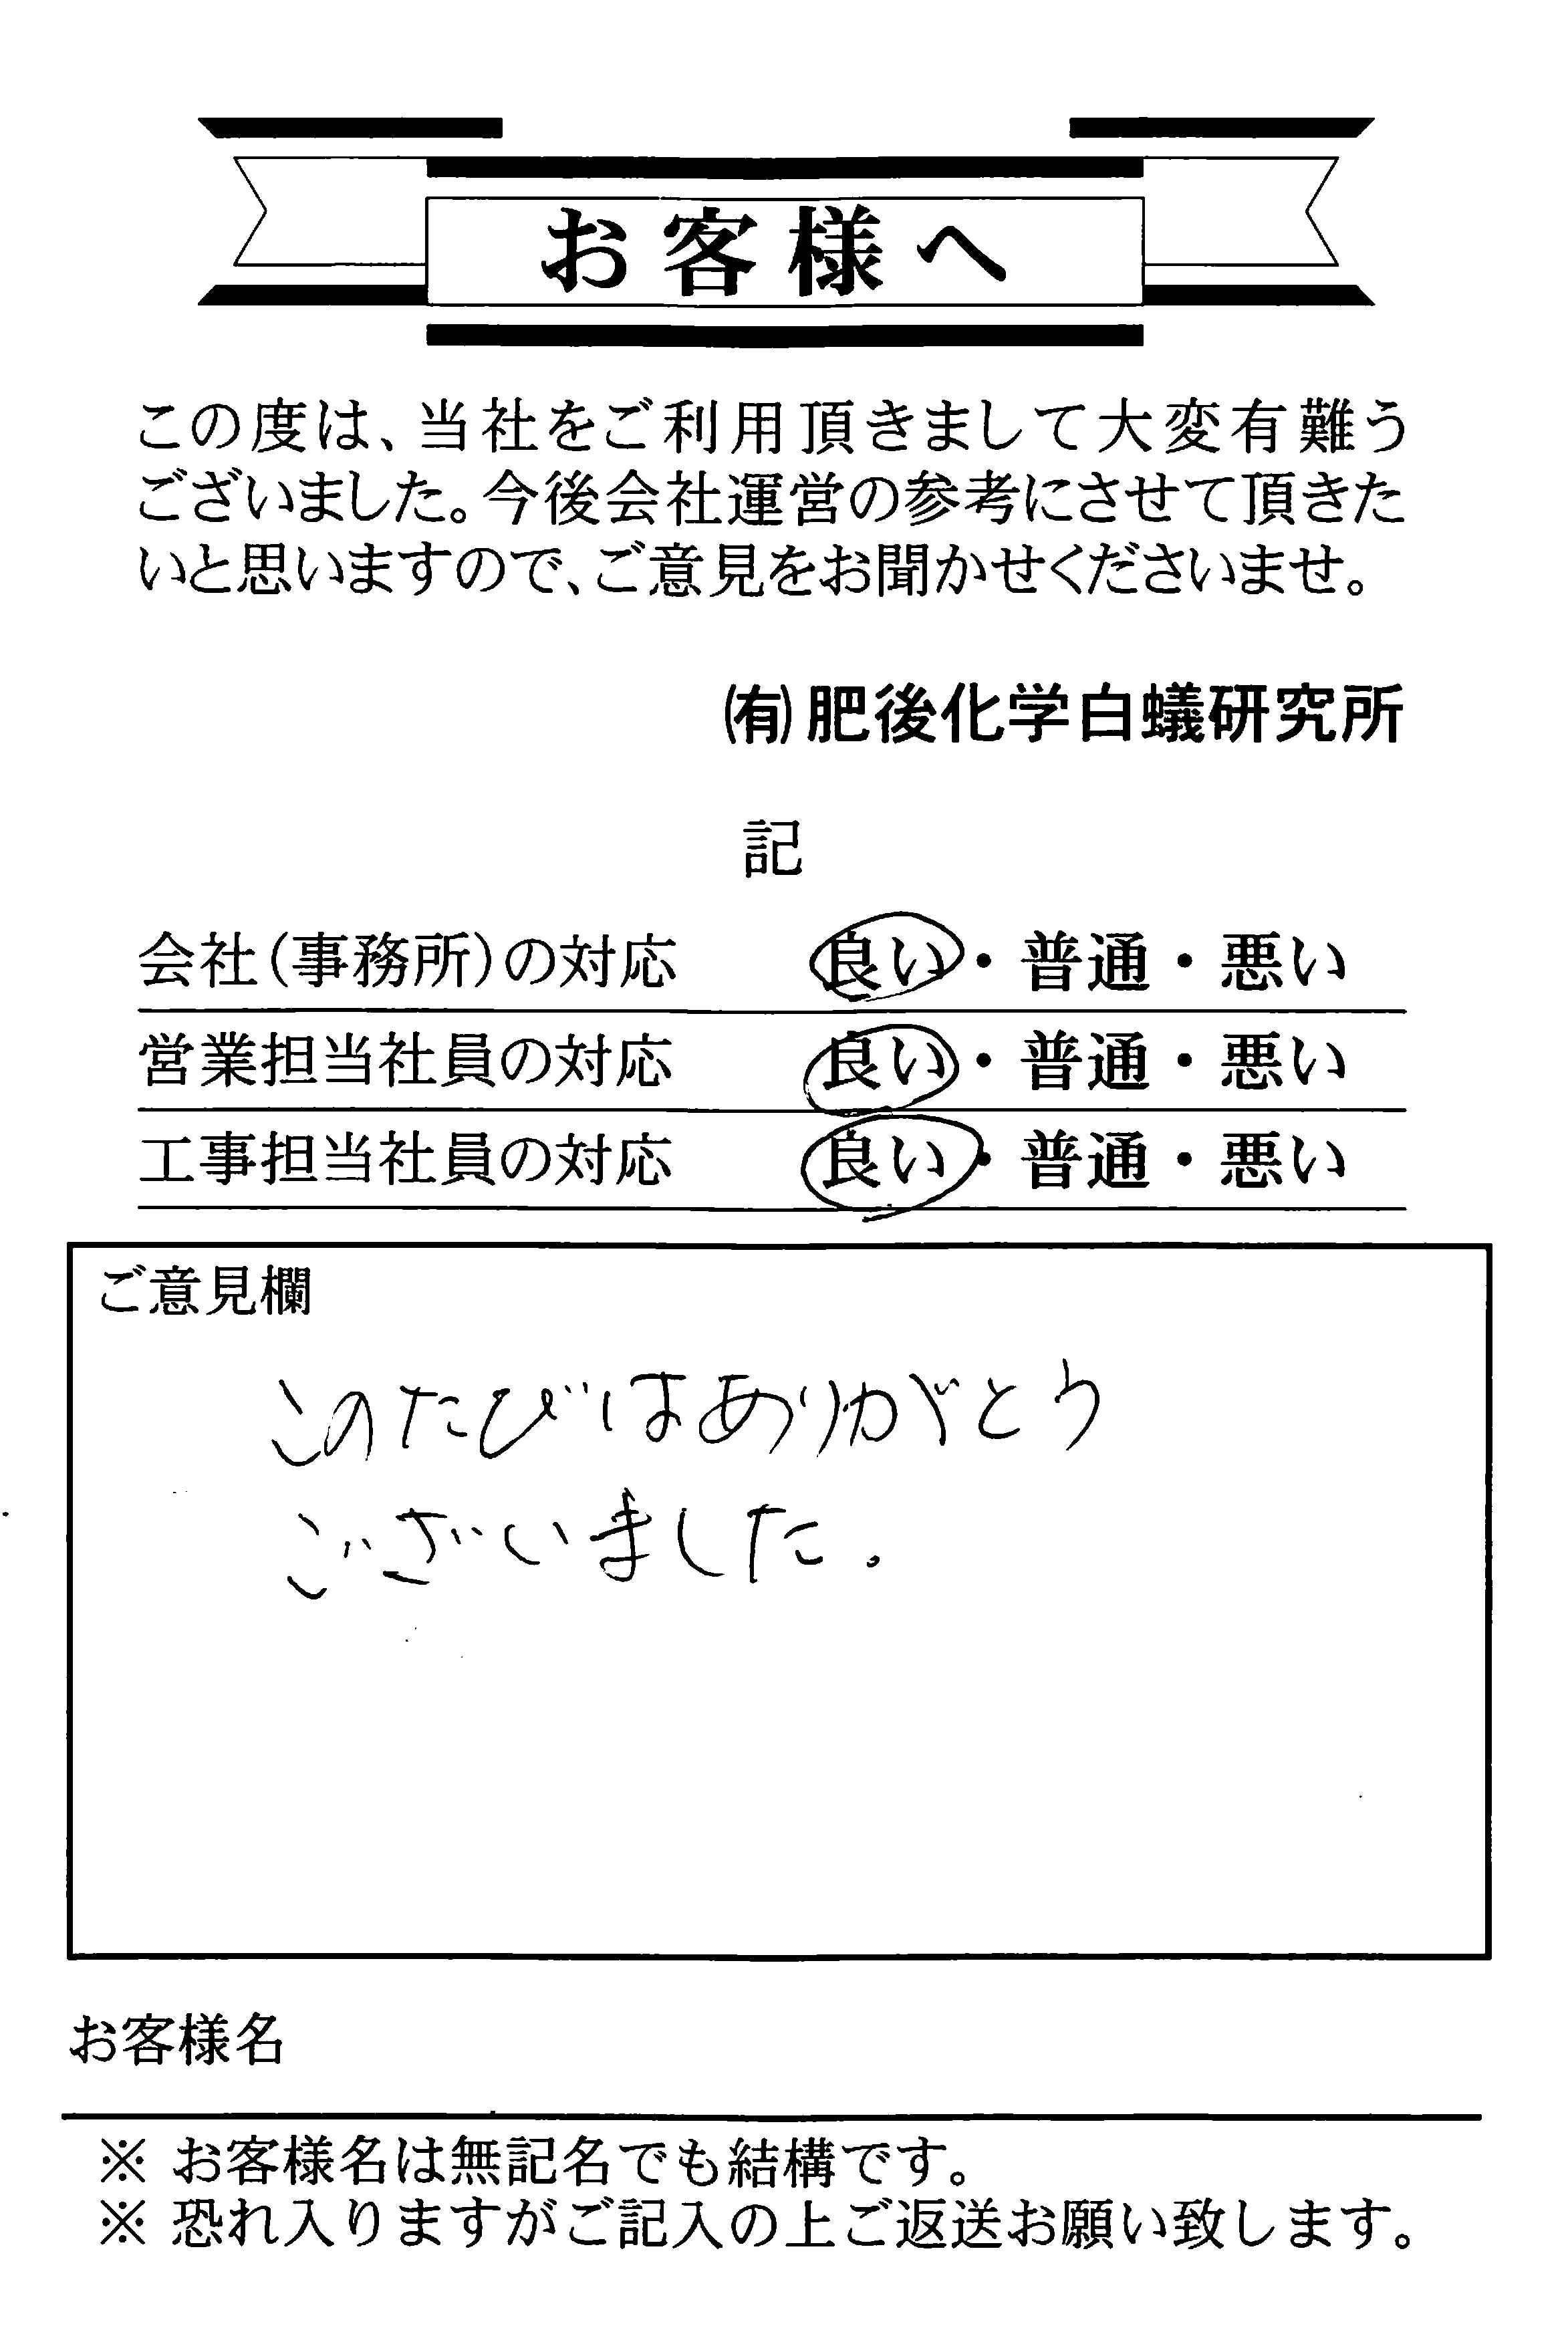 お客様へ
この度は、当社をご利用頂きまして大変有難う
ございました。今後会社運営の参考にさせて頂きた
いと思いますので、ご意見をお聞かせくださいませ。
㈲肥後化学白蟻研究所
記
会社(事務所)の対応 良い・普通・悪い
営業担当社員の対応 良い・普通・悪い
工事担当社員の対応 良い・普通・悪い
ご意見欄
このたびはありがとう
ございました.
お客様名
※ お客様名は無記名でも結構です。
※ 恐れ入りますがご記入の上ご返送お願い致します。